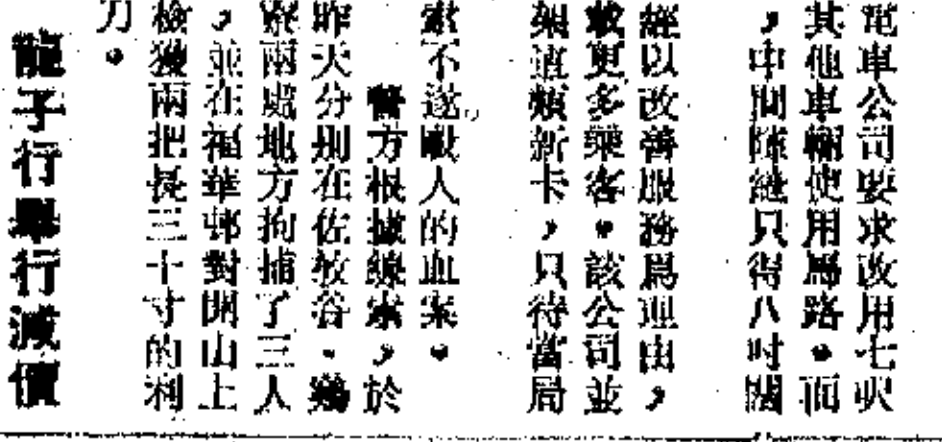 電車公司要求改用七呎
其他車輛使用馬路。而
，中間隙縫只得八吋闊
經以改善服務爲理由，
載更多乘客。該公司並
架這類新卡，只待當局
索不遂砍人的血案。
警方根據線索，於
昨天分別在佐敦谷、雞
寮兩處地方拘捕了三人
，並在福華邨對開山上
檢獲兩把長三十寸的利
刀。
龍子行舉行減價